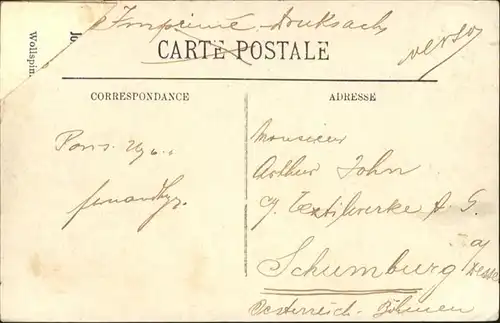 Imprimé - Druksach
Jo
Wollspin
CARTE POSTALE
verso
CORRESPONDANCE
ADRESSE
Monsieur
Arthur John
c/ Textilwerke A. G.
Schumburg a/
Oesterreich - Böhmen